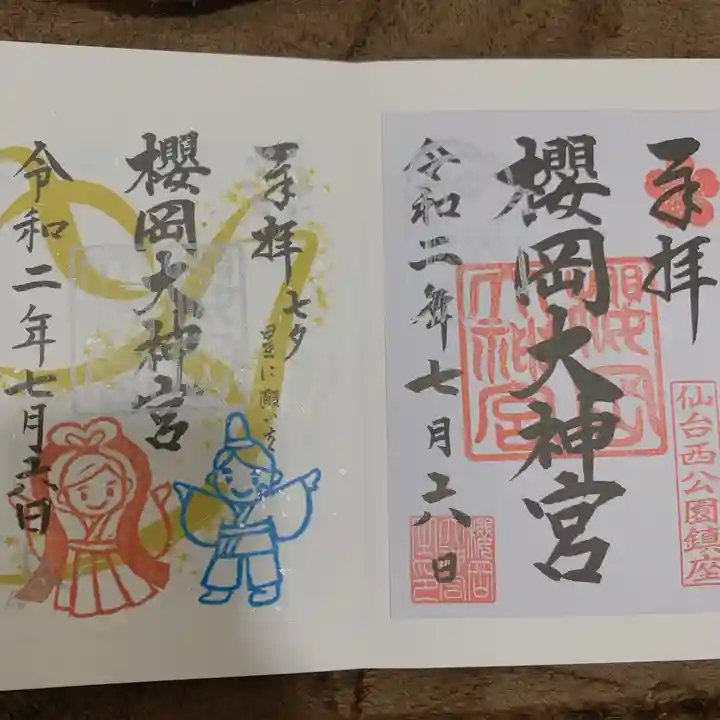 奉拝
仙台西公園鎮座
櫻岡大神宮
令和二年七月六日
奉拝
七夕
星に願いを
櫻岡大神宮
令和二年七月六日